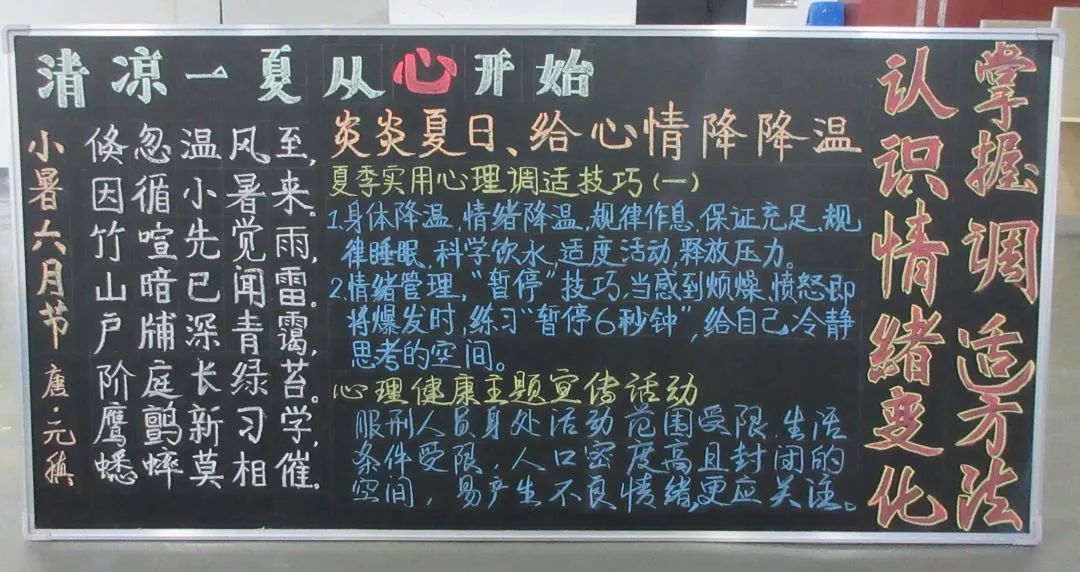 清凉一夏从心开始
小暑六月节 唐·元稹
倏忽温风至，
因循小暑来。
竹喧先觉雨，
山暗已闻雷。
户牖深青霭，
阶庭长绿苔。
鹰鹯新习学，
蟋蟀莫相催。
炎炎夏日、给心情降降温
夏季实用心理调适技巧(一)
1.身体降温,情绪降温,规律作息,保证充足、规
律睡眠,科学饮水,适度活动,释放压力。
2.情绪管理,“暂停”技巧,当感到烦燥、愤怒即
将爆发时,练习“暂停6秒钟”,给自己冷静
思考的空间。
心理健康主题宣传活动
服刑人员身处活动范围受限,生活
条件受限,人口密度高且封闭的
空间,易产生不良情绪,更应关注。
认识情绪变化
掌握调适方法